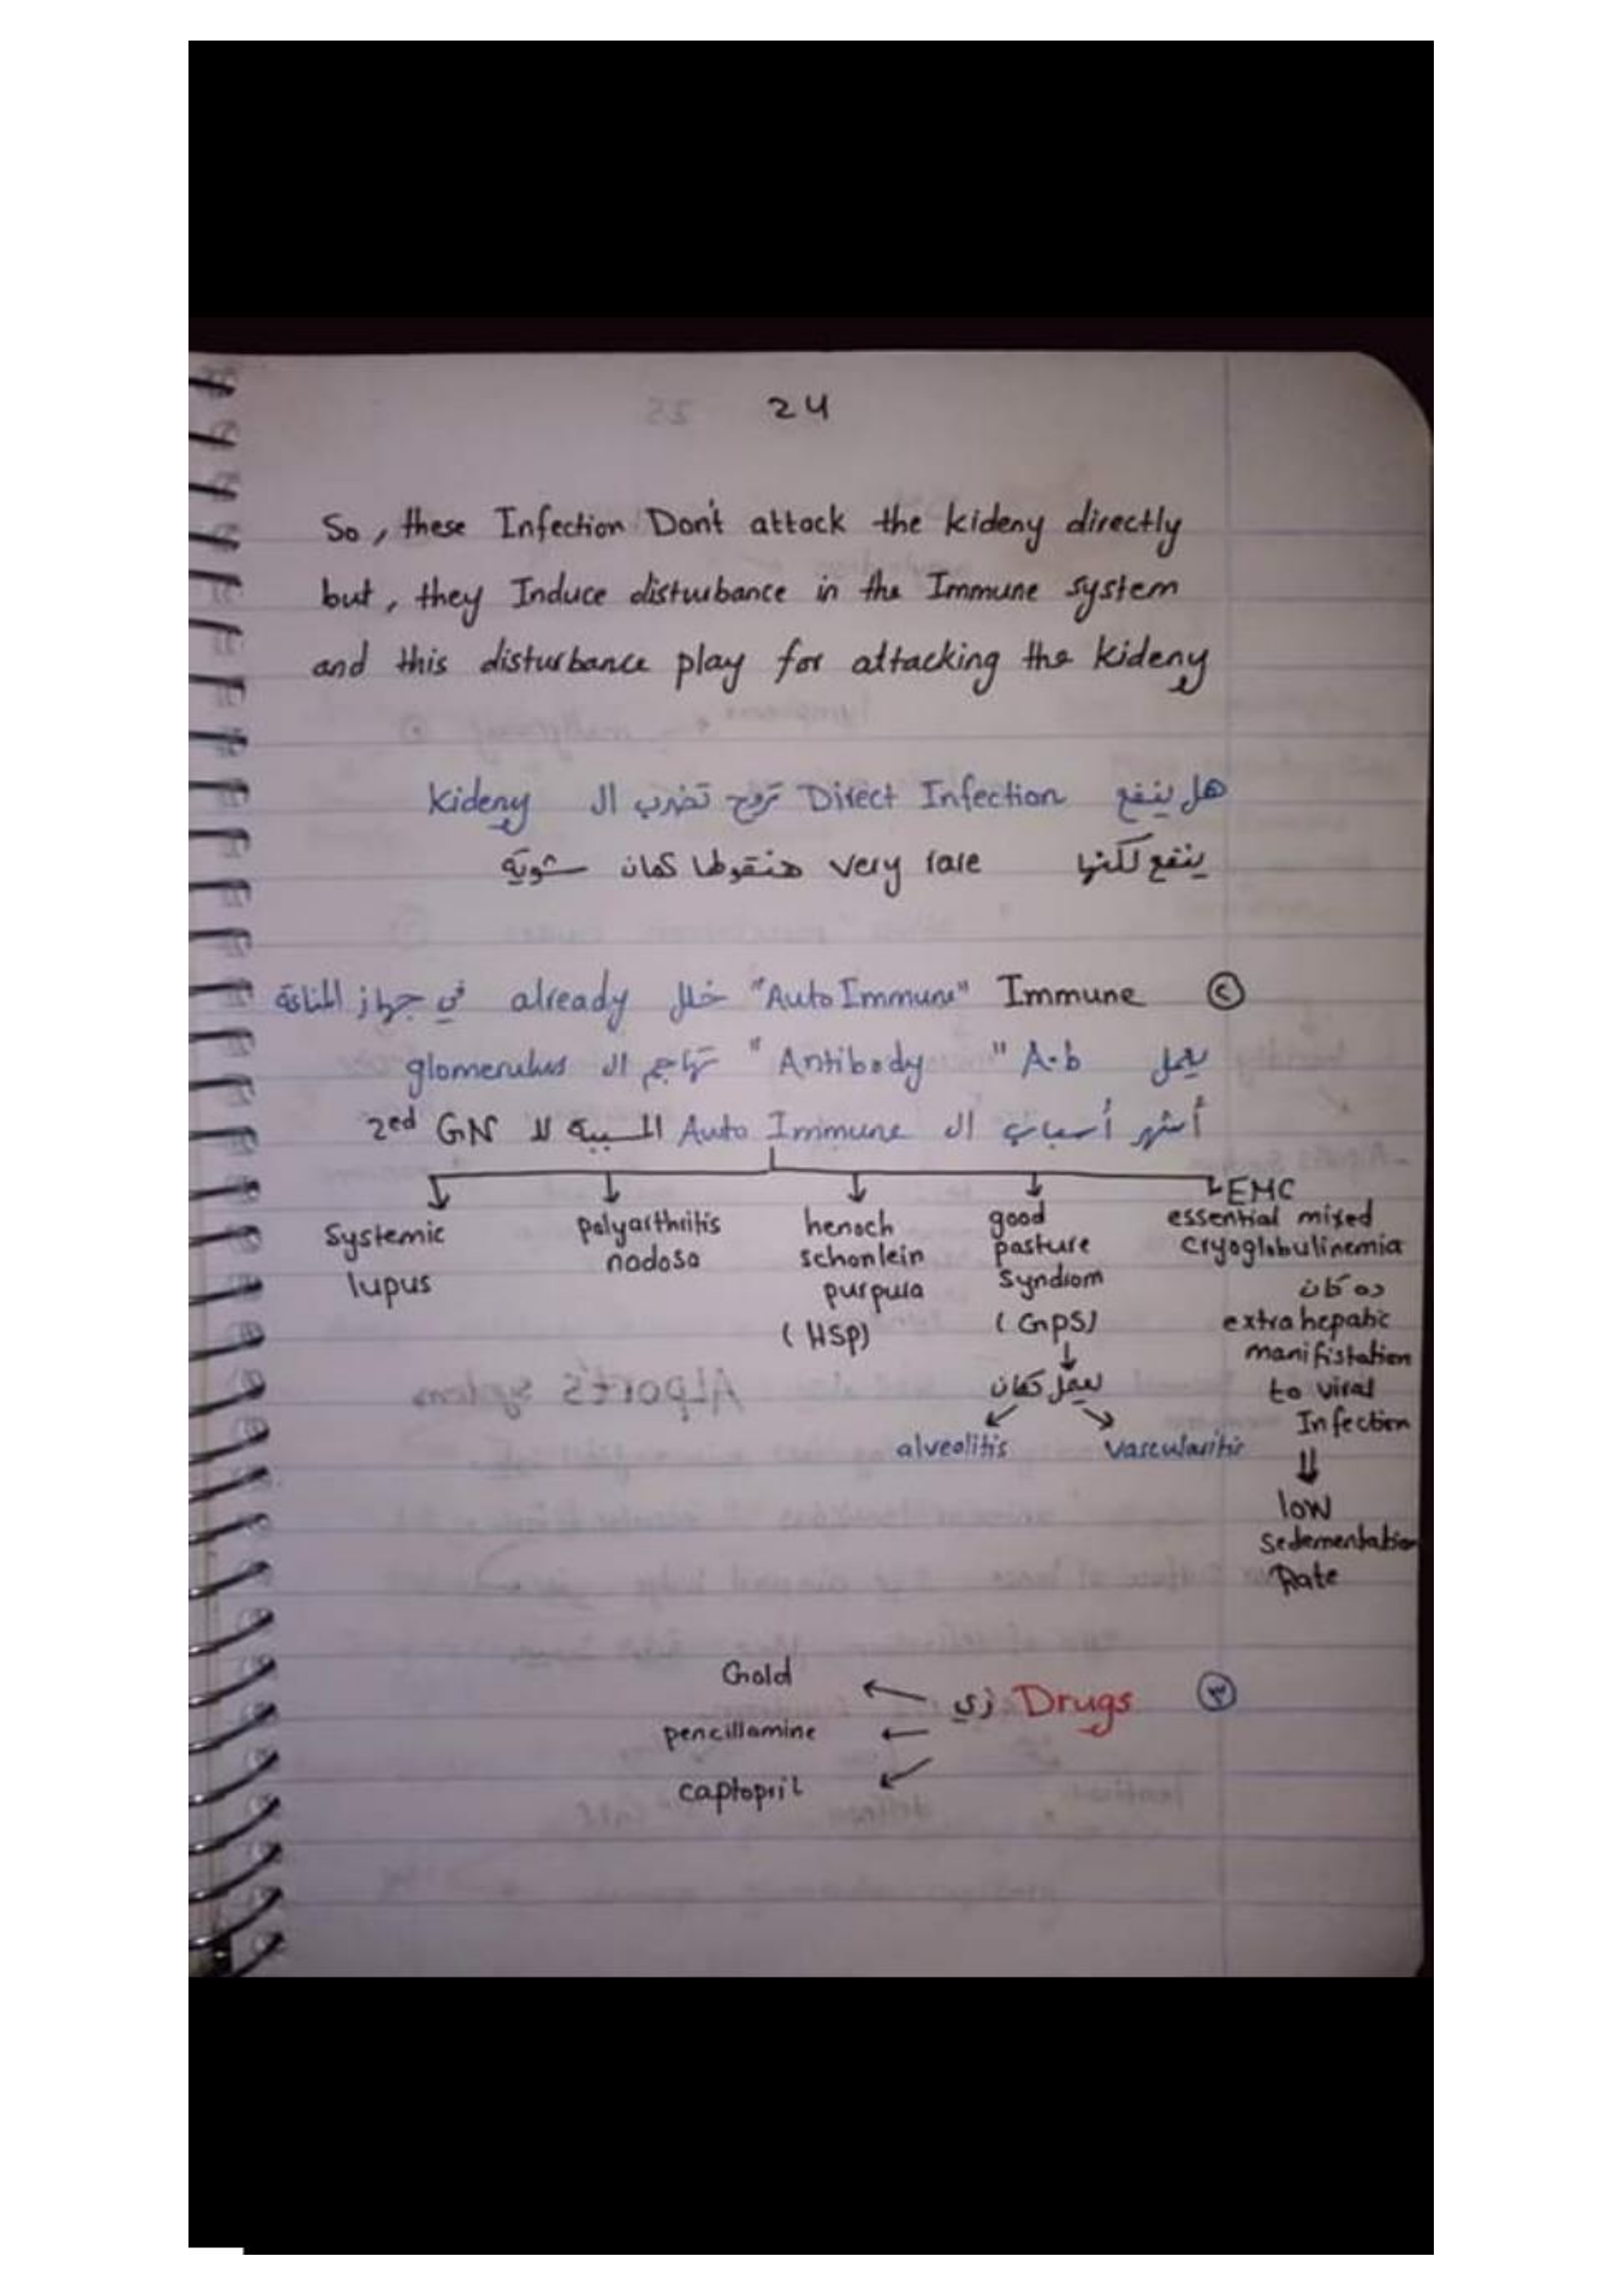 24
So, these Infection Don't attack the kideny directly
but, they Induce disturbance in the Immune system
and this disturbance play for attacking the kideny
هل ينفع Direct Infection تروح تضرب ال kideny
ينفع لكنها very rare هنقولها كمان شوية
② Immune "Auto Immune" خلل already في جهاز المناعة
يعمل A.b "Antibody" تهاجم ال glomerulus
أشهر أسباب ال Auto Immune المسببة لـ 2ed GN
Systemic
lupus
polyarthritis
nodosa
henoch
schonlein
purpura
(HSP)
good
pasture
Syndrom
(GPS)
يعمل كمان
alveolitis
EMC
essential mixed
cryoglobulinemia
ده كان
extrahepatic
manifistation
to viral
Infection
low
Sedementation
Rate
③ Drugs زي
Gold
pencillamine
captopril